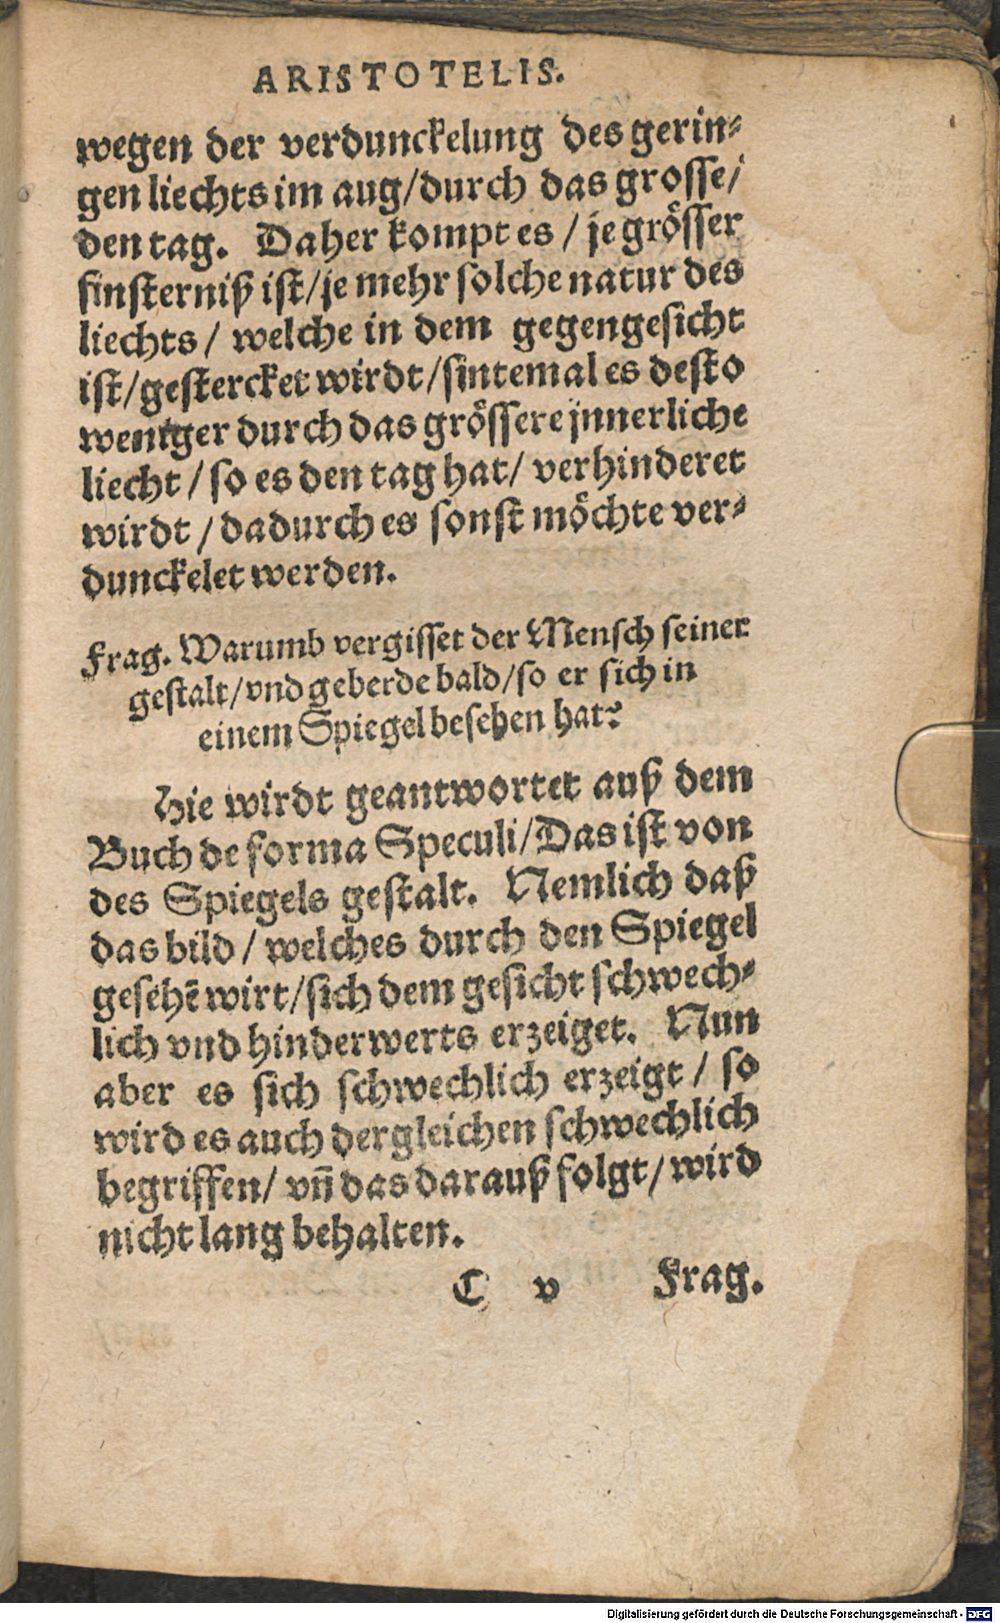 ARISTOTELIS.
wegen der verdunckelung des gerin⸗
gen liechts im aug/durch das grosse/
den tag. Daher kompt es / je grösser
finsterniß ist/je mehr solche natur des
liechts / welche in dem gegengesicht
ist/gestercket wirdt/sintemal es desto
weniger durch das grössere jnnerliche
liecht / so es den tag hat/ verhinderet
wirdt / dadurch es sonst möchte ver⸗
dunckelet werden.
Frag. Warumb vergisset der Mensch seiner
gestalt/vnd geberde bald/so er sich in
einem Spiegel besehen hat?
Hie wirdt geantwortet auß dem
Buch de forma Speculi/Das ist von
des Spiegels gestalt. Nemlich daß
das bild / welches durch den Spiegel
gesehē wirt/sich dem gesicht schwech⸗
lich vnd hinderwerts erzeiget. Nun
aber es sich schwechlich erzeigt / so
wird es auch dergleichen schwechlich
begriffen/ vñ das darauß folgt/wird
nicht lang behalten.
C v Frag.
Digitalisierung gefördert durch die Deutsche Forschungsgemeinschaft - DFG